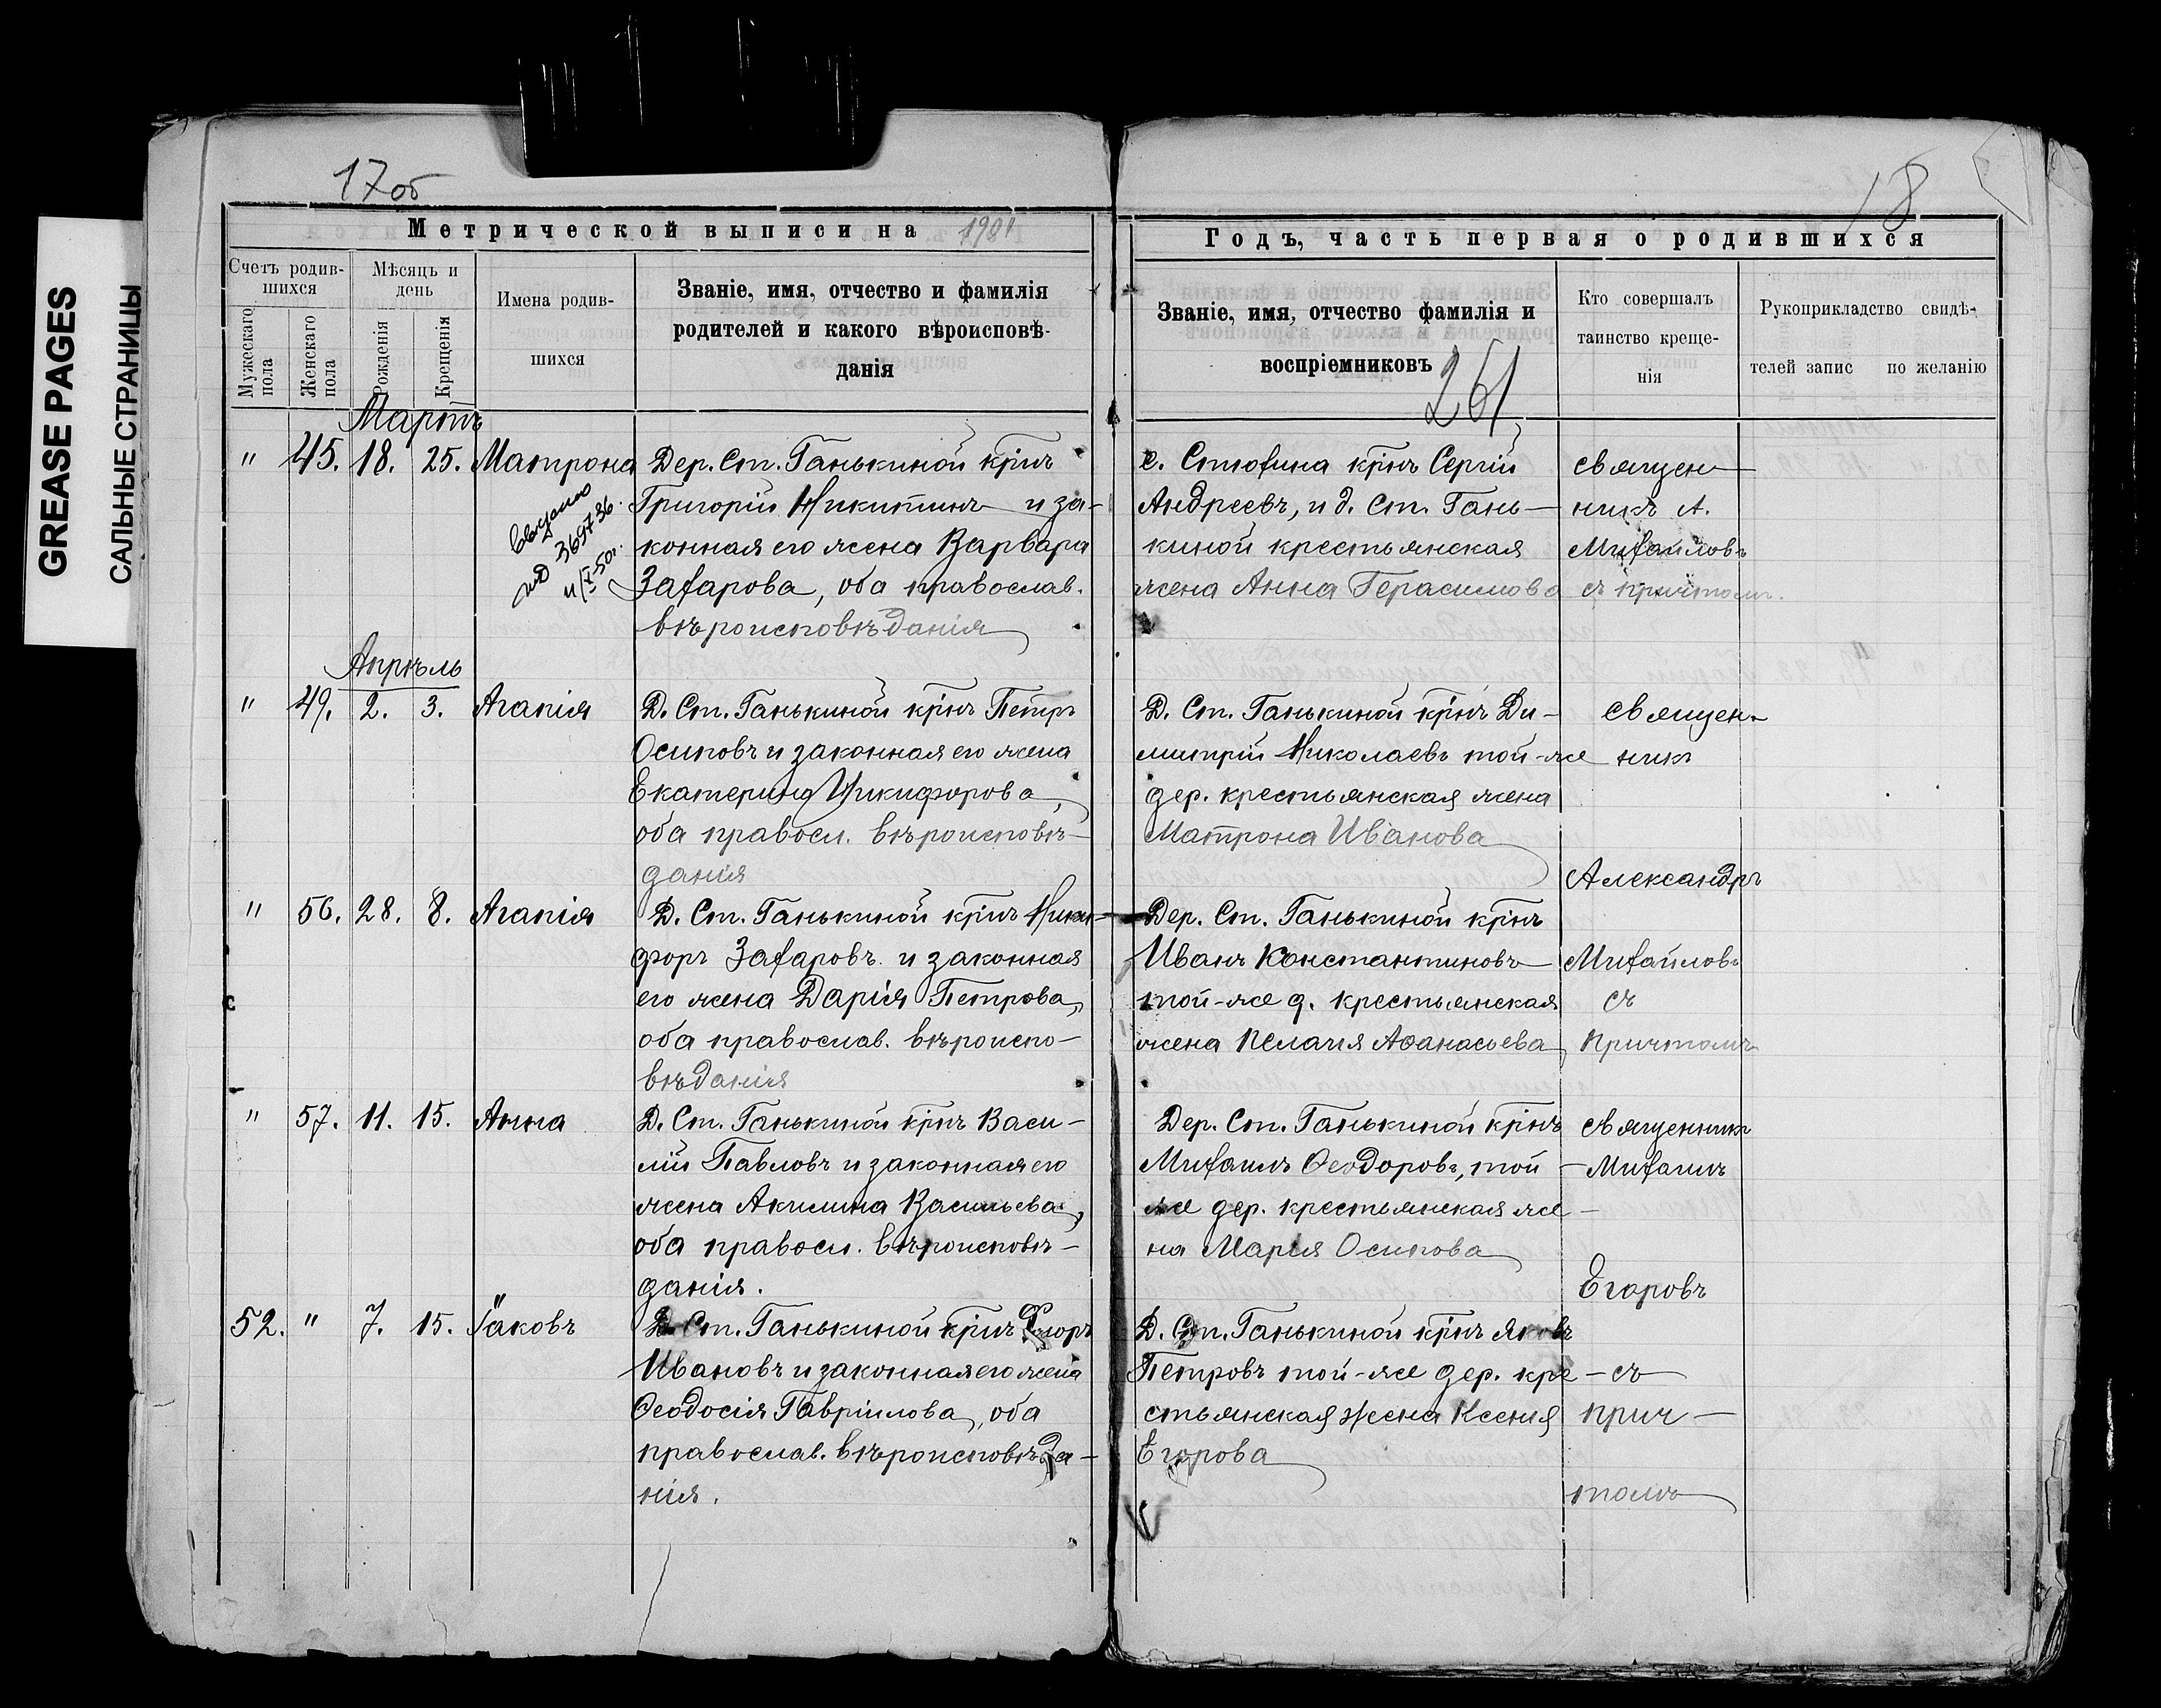 GREASE PAGES
САЛЬНЫЕ СТРАНИЦЫ
17об
18
Метрической выписи на 1901
Годъ, часть первая о родившихся
Счетъ родив-
шихся
Мужескаго пола
Женскаго пола
Мѣсяць и
день
Рожденія
Крещенія
Имена родив-
шихся
Званіе, имя, отчество и фамилія
родителей и какого вѣроисповѣ-
данія
Званіе, имя, отчество фамилія и
воспріемниковъ
261
Кто совершалъ
таинство креще-
нія
Рукоприкладство свидѣ-
телей запис по желанію
Мартъ
" 45. 18. 25. Матрона
Дер. Ст. Ганькиной кр̅нъ
Григорій Никитинъ и за-
конная его жена Варвара
Захарова, оба православ.
вѣроисповѣданія
с. Стюхина кр̅нъ Сергій
Андреевъ, и д. Ст. Гань-
киной крестьянская
жена Анна Герасимова
священ-
никъ А.
Михайловъ
съ причтомъ.
Апрѣль
" 49. 2. 3. Агапія
Д. Ст. Ганькиной кр̅нъ Петръ
Осиповъ и законная его жена
Екатерина Никифорова,
оба правосл. вѣроисповѣ-
данія
Д. Ст. Ганькиной кр̅нъ Ди-
митрій Николаевъ той-же
дер. крестьянская жена
Матрона Иванова
священ-
никъ
Александръ
" 56. 28. 8. Агапія
Д. Ст. Ганькиной кр̅нъ Ники-
форъ Захаровъ и законная
его жена Дарія Петрова,
оба православ. вѣроиспо-
вѣданія
Дер. Ст. Ганькиной кр̅нъ
Иванъ Константиновъ
той-же д. крестьянская
жена Пелагія Аѳанасьева
Михайловъ
съ
причтомъ
" 57. 11. 15. Анна
Д. Ст. Ганькиной кр̅нъ Васи-
лій Павловъ и законная его
жена Акилина Васильева,
оба правосл. вѣроисповѣ-
данія.
Дер. Ст. Ганькиной кр̅нъ
Михаилъ Ѳеодоровъ, той
же дер. крестьянская же-
на Марія Осипова
священникъ
Михаилъ
Егоровъ
52. " 7. 15. Іаковъ
Д. Ст. Ганькиной кр̅нъ
Ивановъ и законная его жена
Ѳеодосія Гавріилова, оба
православ. вѣроисповѣда-
нія.
Д. Ст. Ганькиной кр̅нъ Яковъ
Петровъ той-же дер. кре-
стьянская жена Ксенія
Егорова
съ
прич-
томъ